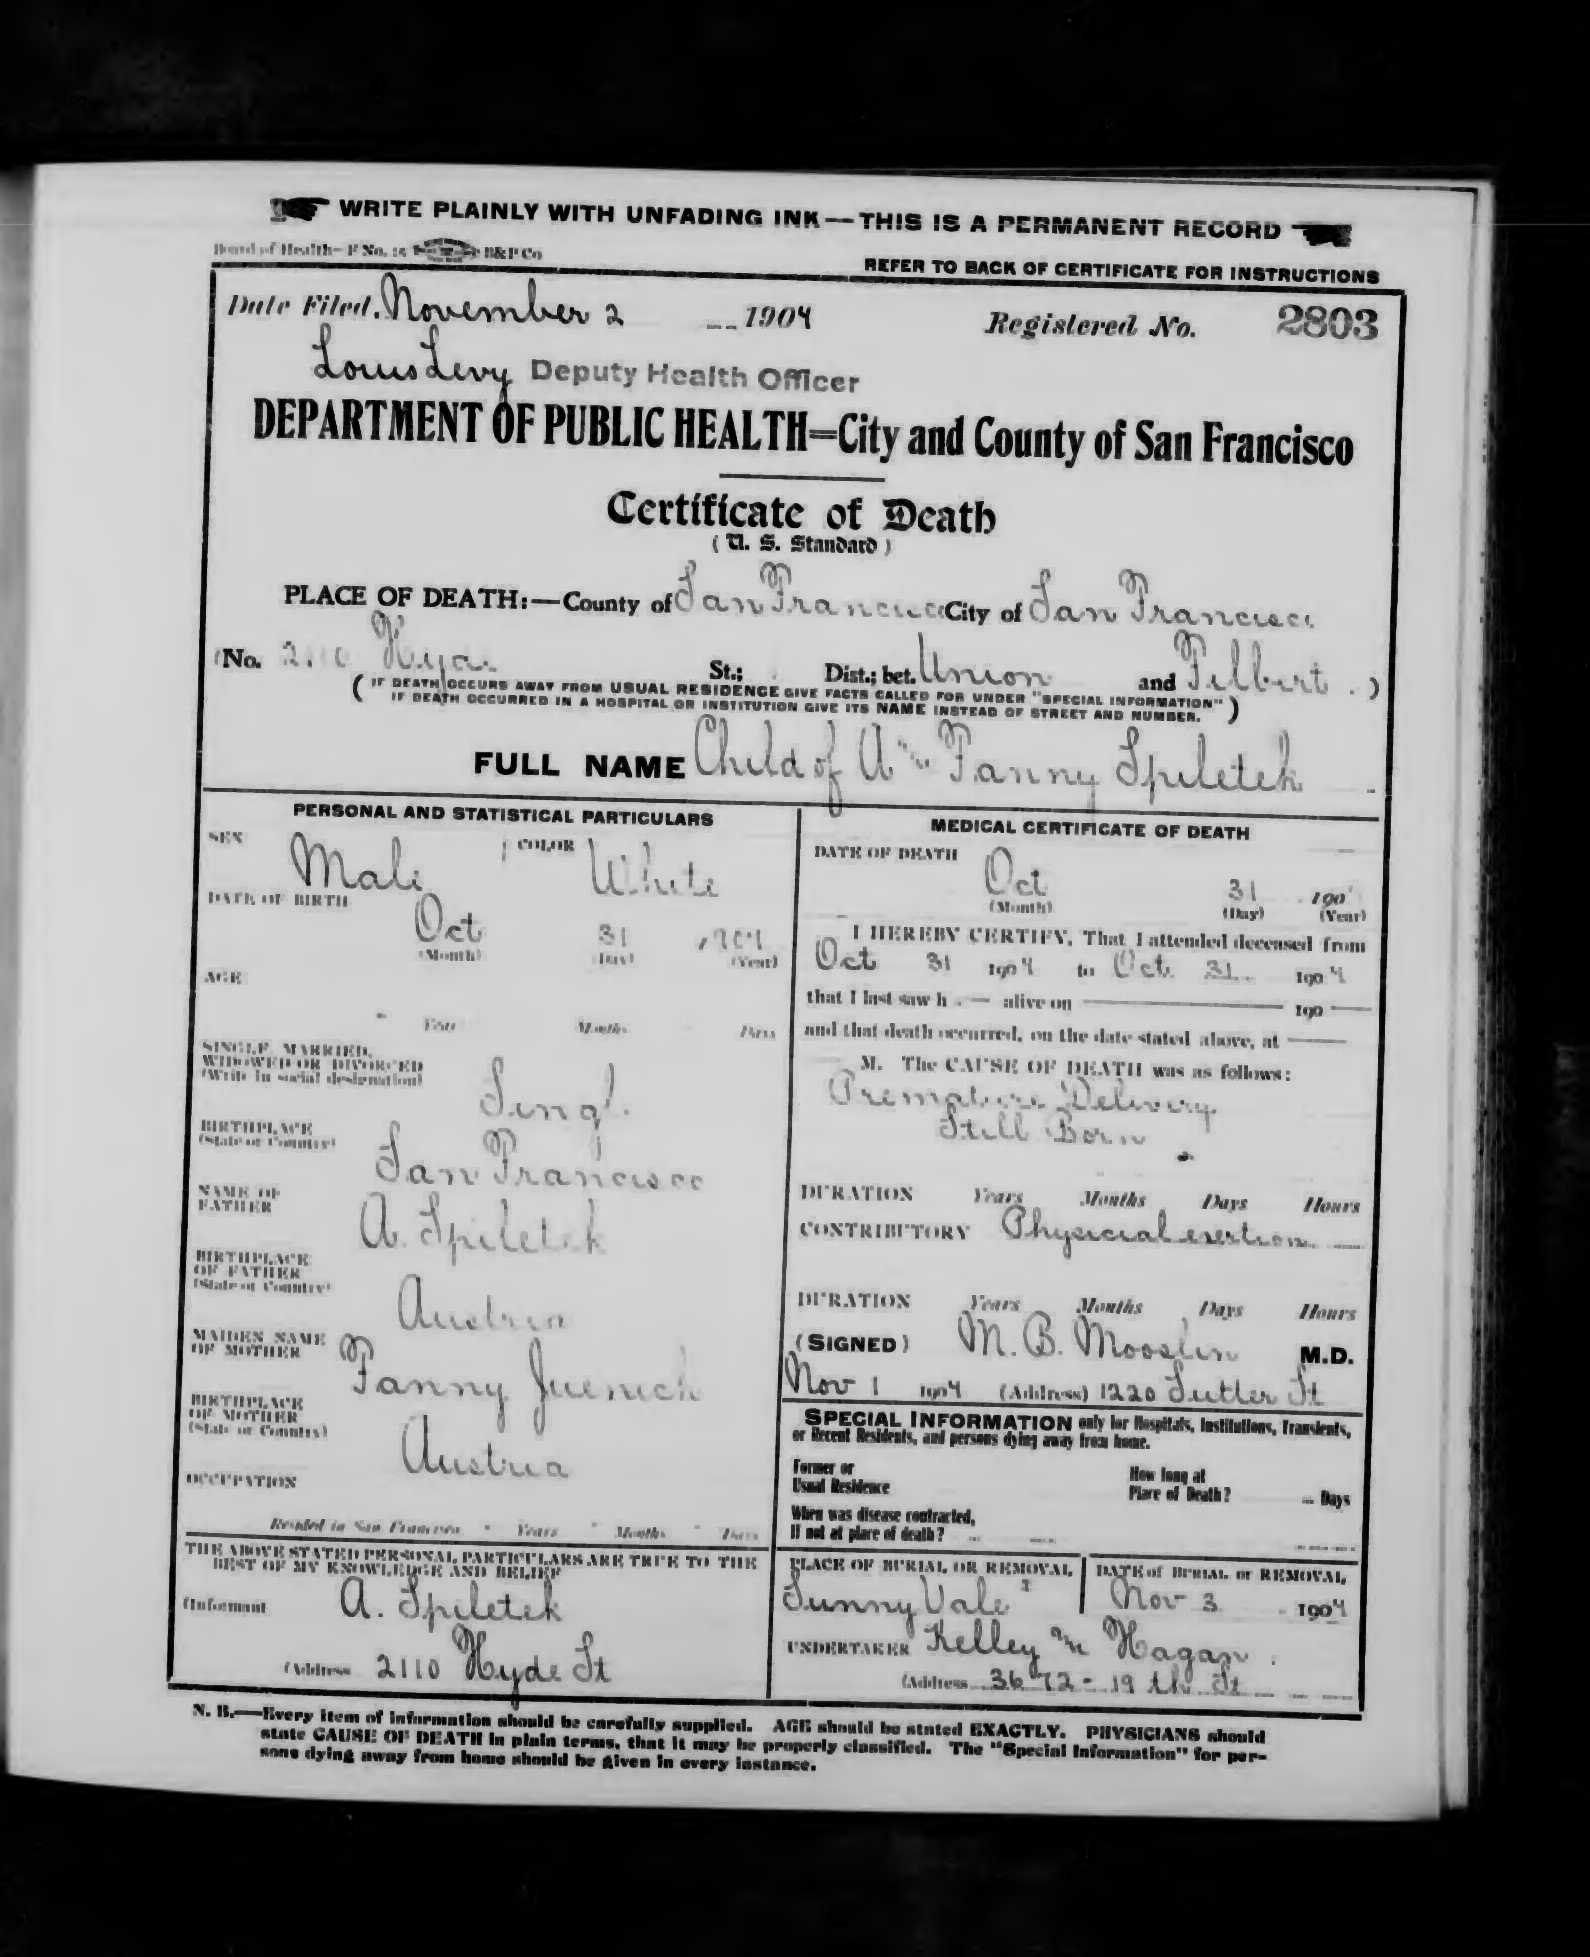 WRITE PLAINLY WITH UNFADING INK—THIS IS A PERMANENT RECORD
Board of Health—F No. 15 B&P Co
REFER TO BACK OF CERTIFICATE FOR INSTRUCTIONS
Date Filed, November 2 1904 Registered No. 2803
Louis Levy Deputy Health Officer
DEPARTMENT OF PUBLIC HEALTH=City and County of San Francisco
Certificate of Death
( U. S. Standard )
PLACE OF DEATH:—County of San Francisco City of San Francisco
(No. 2110 Hyde St.; Dist.; bet. Union and Filbert . )
( IF DEATH OCCURS AWAY FROM USUAL RESIDENCE GIVE FACTS CALLED FOR UNDER "SPECIAL INFORMATION"
IF DEATH OCCURRED IN A HOSPITAL OR INSTITUTION GIVE ITS NAME INSTEAD OF STREET AND NUMBER. )
FULL NAME Child of A and Fanny Spiletek
PERSONAL AND STATISTICAL PARTICULARS
SEX Male COLOR White
DATE OF BIRTH
Oct 31 1904
(Month) (Day) (Year)
AGE
Years Months Days
SINGLE, MARRIED,
WIDOWED OR DIVORCED
(Write in social designation)
Singl
BIRTHPLACE
(State or Country)
San Francisco
NAME OF
FATHER
A. Spiletek
BIRTHPLACE
OF FATHER
(State or Country)
Austria
MAIDEN NAME
OF MOTHER
Fanny Juenich
BIRTHPLACE
OF MOTHER
(State or Country)
Austria
OCCUPATION
Resided in San Francisco Years Months Days
THE ABOVE STATED PERSONAL PARTICULARS ARE TRUE TO THE
BEST OF MY KNOWLEDGE AND BELIEF
(Informant A. Spiletek
(Address 2110 Hyde St
MEDICAL CERTIFICATE OF DEATH
DATE OF DEATH
Oct 31 190
(Month) (Day) (Year)
I HEREBY CERTIFY, That I attended deceased from
Oct 31 1904 to Oct. 31. 1904
that I last saw h — alive on — 190 —
and that death occurred, on the date stated above, at —
M. The CAUSE OF DEATH was as follows:
Premature Delivery
Still Born
DURATION Years Months Days Hours
CONTRIBUTORY Physicial exertion
DURATION Years Months Days Hours
(SIGNED) M. B. Mooslin M.D.
Nov 1 1904 (Address) 1220 Sutter St
SPECIAL INFORMATION only for Hospitals, Institutions, Transients,
or Recent Residents, and persons dying away from home.
Former or
Usual Residence
How long at
Place of Death? Days
When was disease contracted,
If not at place of death?
PLACE OF BURIAL OR REMOVAL
Sunny Vale
DATE of BURIAL or REMOVAL
Nov 3 1904
UNDERTAKER Kelley and Hagan
(Address 3672 - 19 th St
N. B.—Every item of information should be carefully supplied. AGE should be stated EXACTLY. PHYSICIANS should
state CAUSE OF DEATH in plain terms, that it may be properly classified. The "Special Information" for per-
sons dying away from home should be given in every instance.